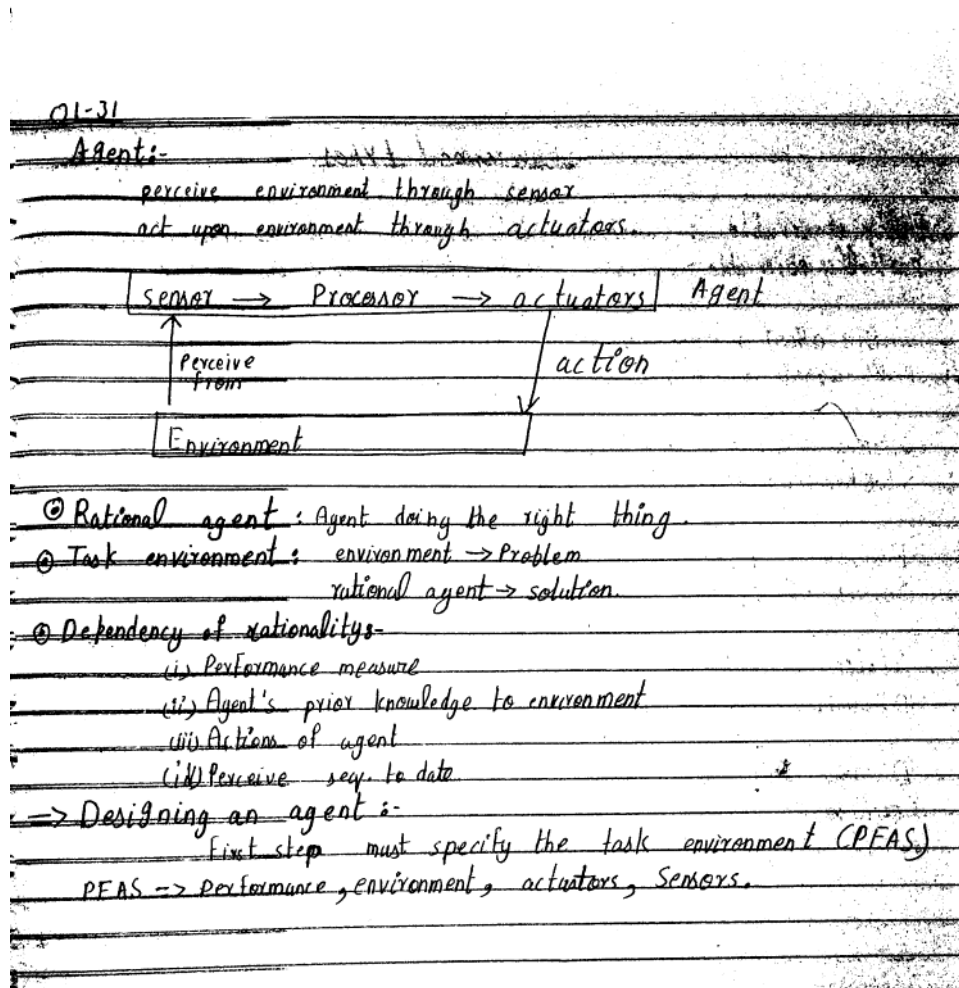 01-31
Agent:-
perceive environment through sensor
act upon environment through actuators.
sensor → Processor → actuators Agent
Perceive from
action
Environment
Rational agent : Agent doing the right thing.
Task environment : environment → Problem
rational agent → solution.
Dependency of rationality:-
(i) Performance measure
(ii) Agent's prior knowledge to environment
(iii) Actions of agent
(iv) Perceive seq. to date
=> Designing an agent :-
First step must specify the task environment (PEAS)
PEAS -> Performance, environment, actuators, Sensors.